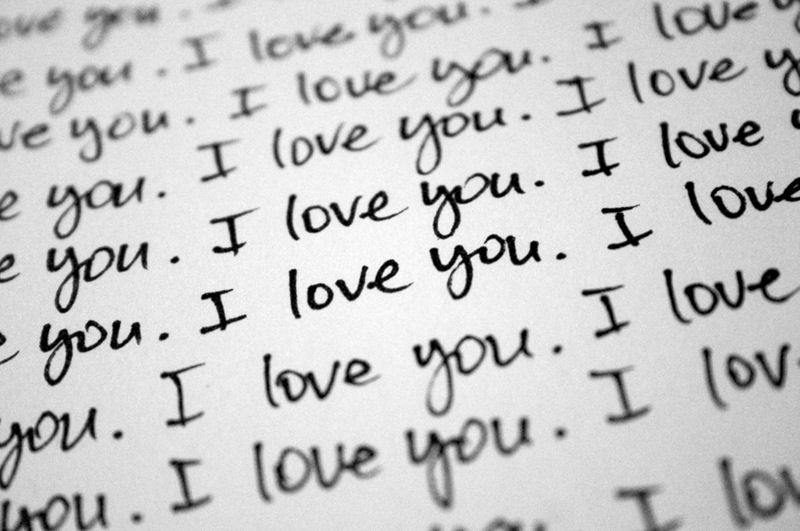 ove you.
e you. I love you.
ve you. I love you. I love
e you. I love you. I love y
e you. I love you. I love
e you. I love you. I love
you. I love you. I love
you. I love you. I lov
I lov